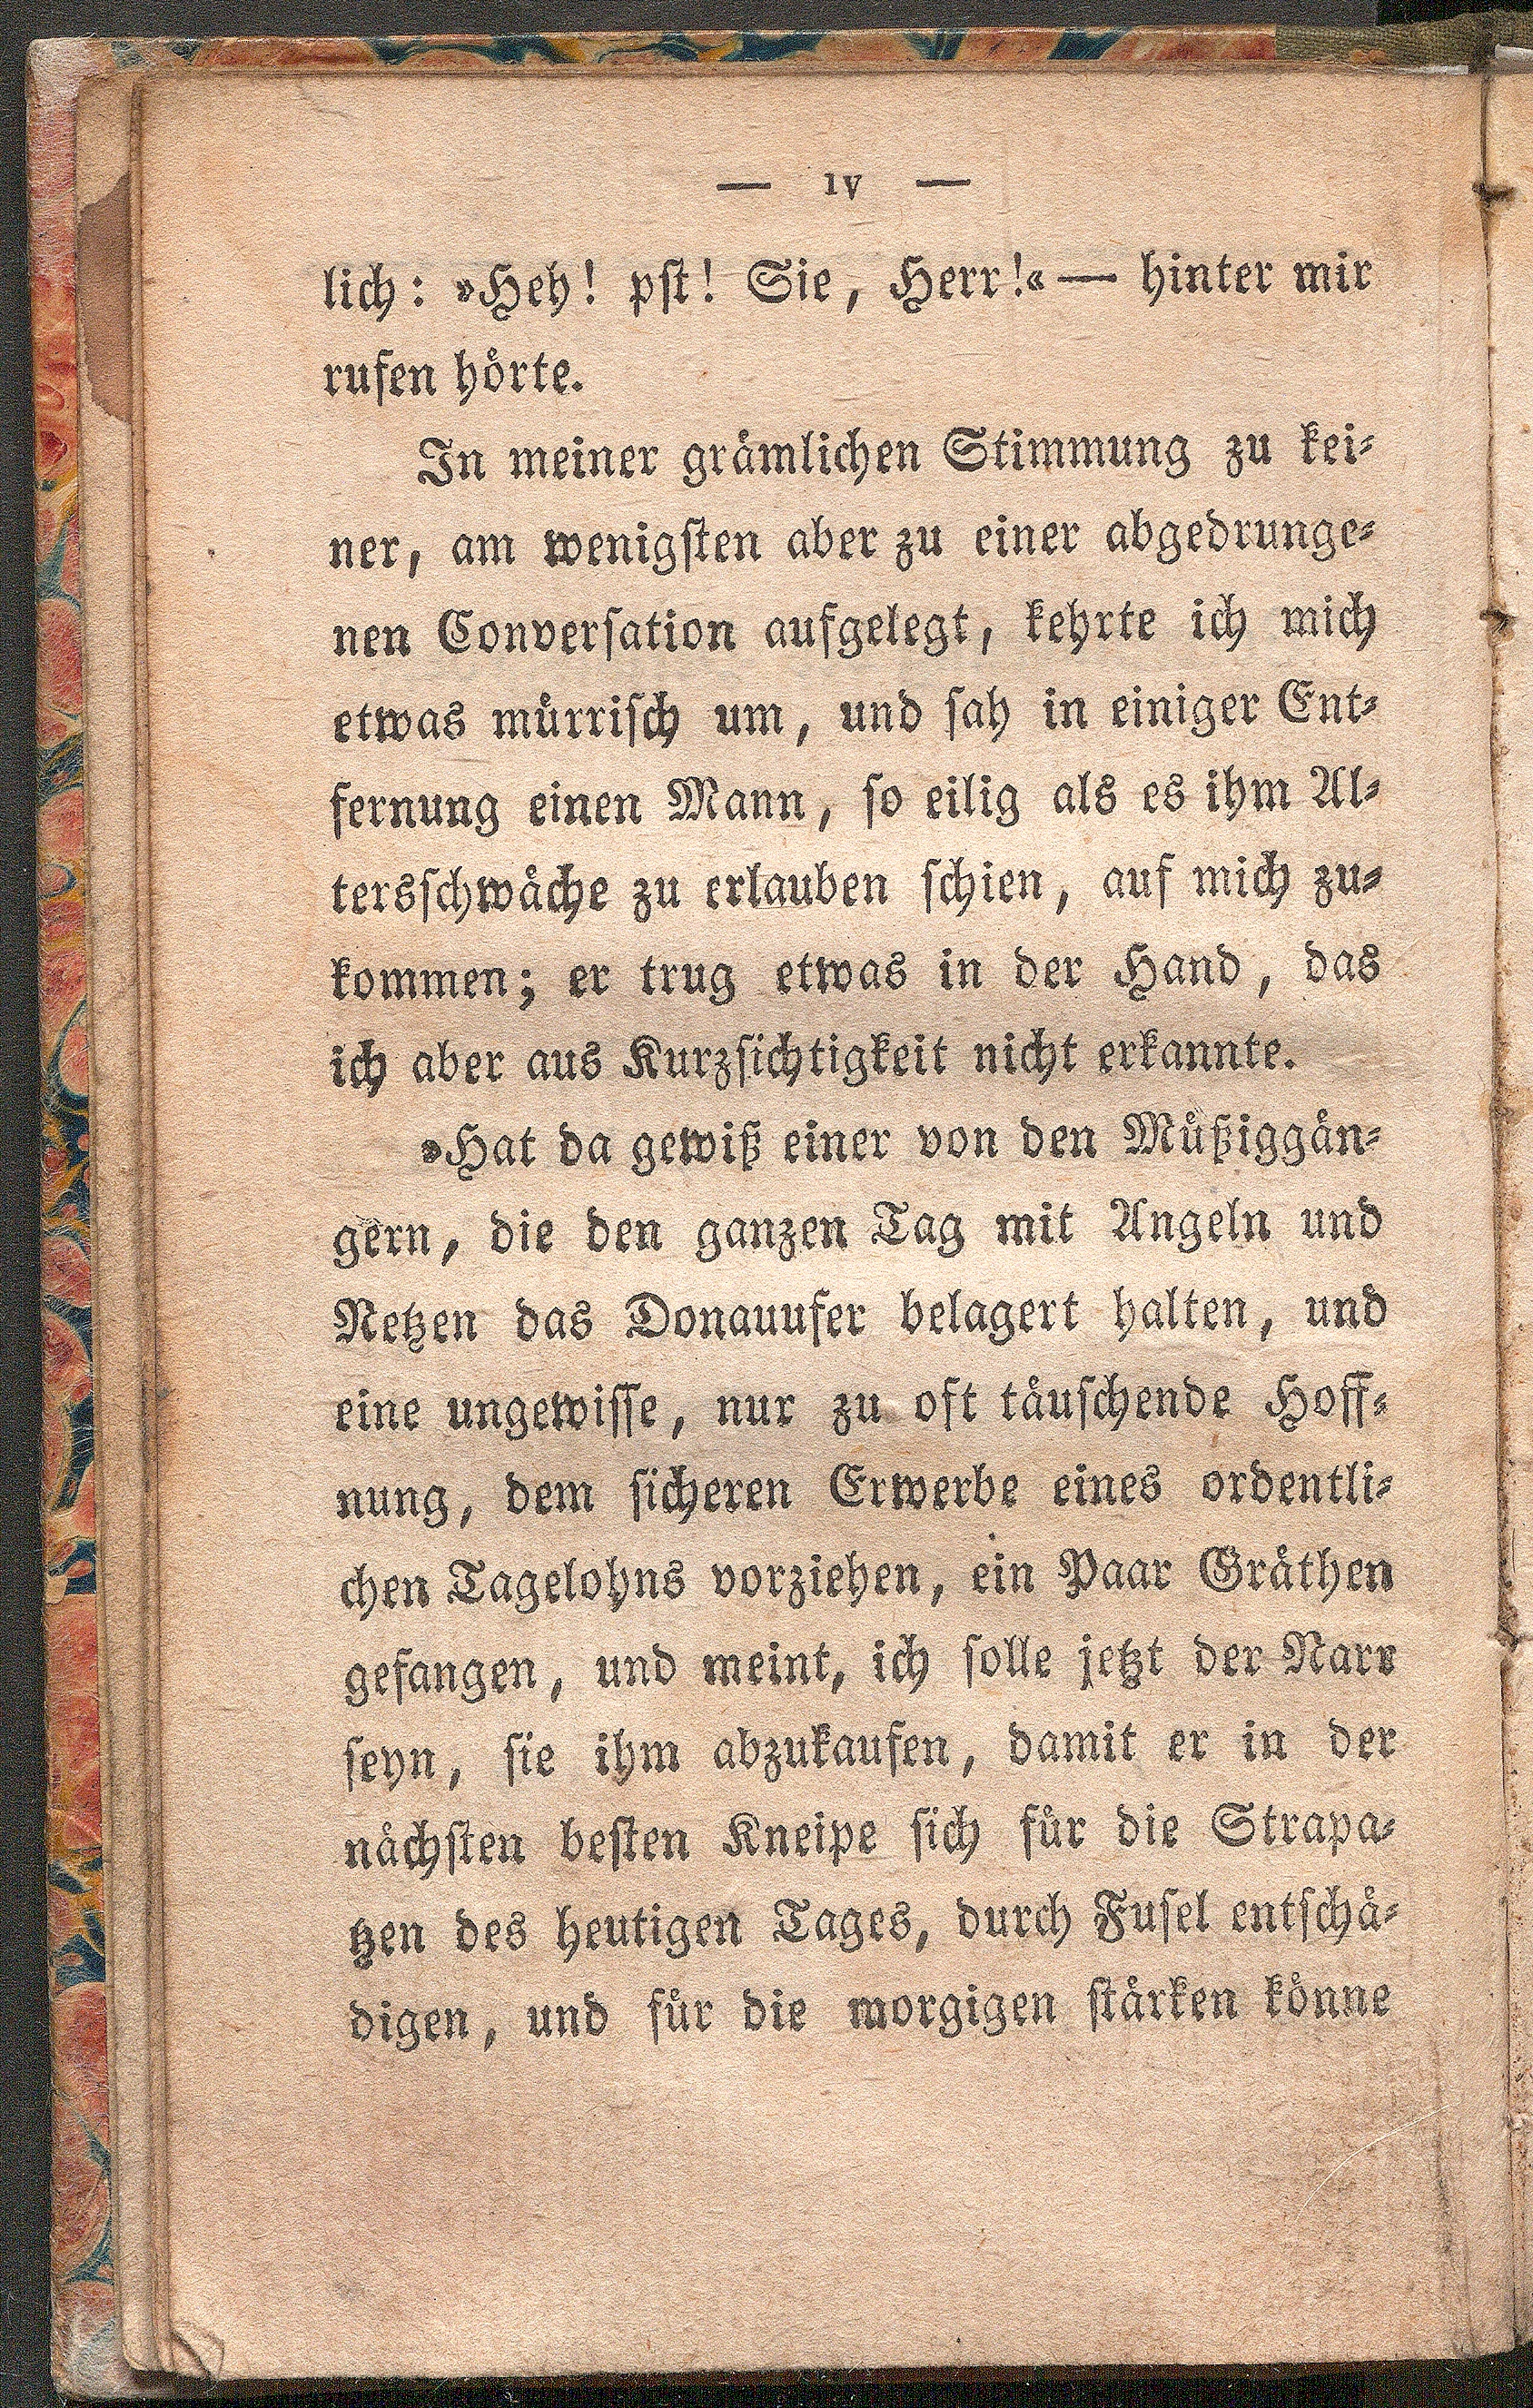 — IV —
lich: »Heh! pst! Sie, Herr!« — hinter mir
rufen hörte.
In meiner grämlichen Stimmung zu kei-
ner, am wenigsten aber zu einer abgedrunge-
nen Conversation aufgelegt, kehrte ich mich
etwas mürrisch um, und sah in einiger Ent-
fernung einen Mann, so eilig als es ihm Al-
tersschwäche zu erlauben schien, auf mich zu-
kommen; er trug etwas in der Hand, das
ich aber aus Kurzsichtigkeit nicht erkannte.
»Hat da gewiß einer von den Müßiggän-
gern, die den ganzen Tag mit Angeln und
Netzen das Donauufer belagert halten, und
eine ungewisse, nur zu oft täuschende Hoff-
nung, dem sicheren Erwerbe eines ordentli-
chen Tagelohns vorziehen, ein Paar Gräthen
gefangen, und meint, ich solle jetzt der Narr
seyn, sie ihm abzukaufen, damit er in der
nächsten besten Kneipe sich für die Strapa-
tzen des heutigen Tages, durch Fusel entschä-
digen, und für die morgigen stärken könne